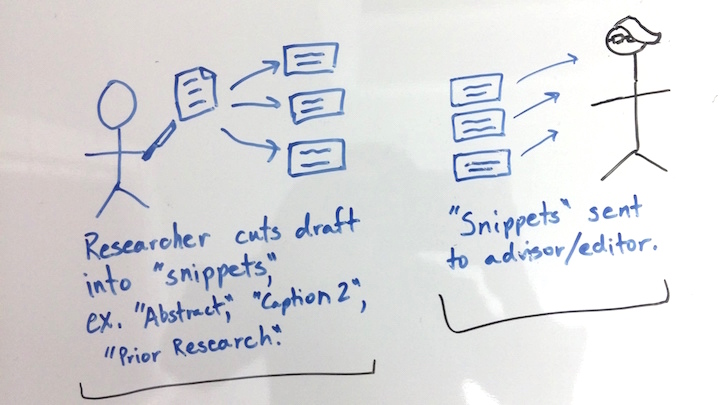 Researcher cuts draft
into "snippets,"
ex. "Abstract," "Caption 2",
"Prior Research."
"Snippets" sent
to advisor/editor.